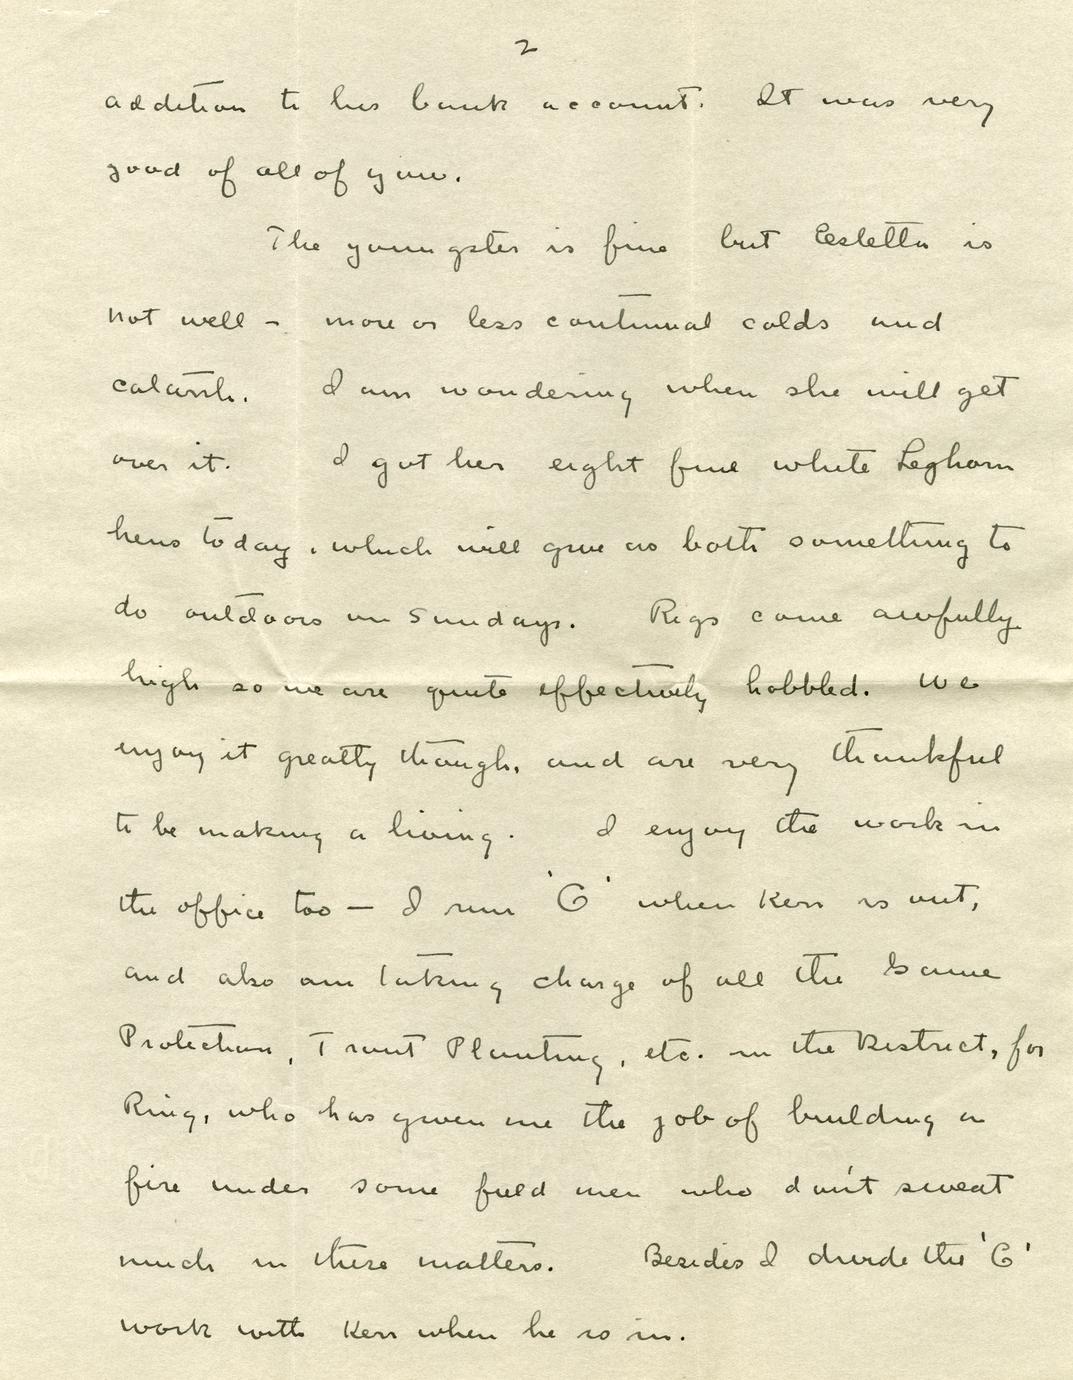 2
addition to his bank account. It was very
good of all of you.
The youngster is fine but Estella is
not well - more or less continual colds and
catarrh. I am wondering when she will get
over it. I got her eight fine white Leghorn
hens today, which will give us both something to
do outdoors on Sundays. Rigs come awfully
high so we are quite effectively hobbled. We
enjoy it greatly though, and are very thankful
to be making a living. I enjoy the work in
the office too — I run 'G' when Kerr is out,
and also am taking charge of all the Game
Protection, Trout Planting, etc. in the District, for
Ring, who has given me the job of building a
fire under some field men who don't sweat
much in these matters. Besides I divide the 'G'
work with Kerr when he is in.